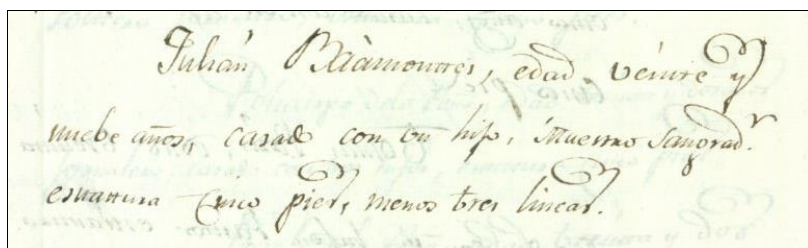 Julián Bààmontes, edad veinte y
nuebe años, casado con un hijo, Maestro Sangrad.r
estattura Cinco pies, menos tres lineas.